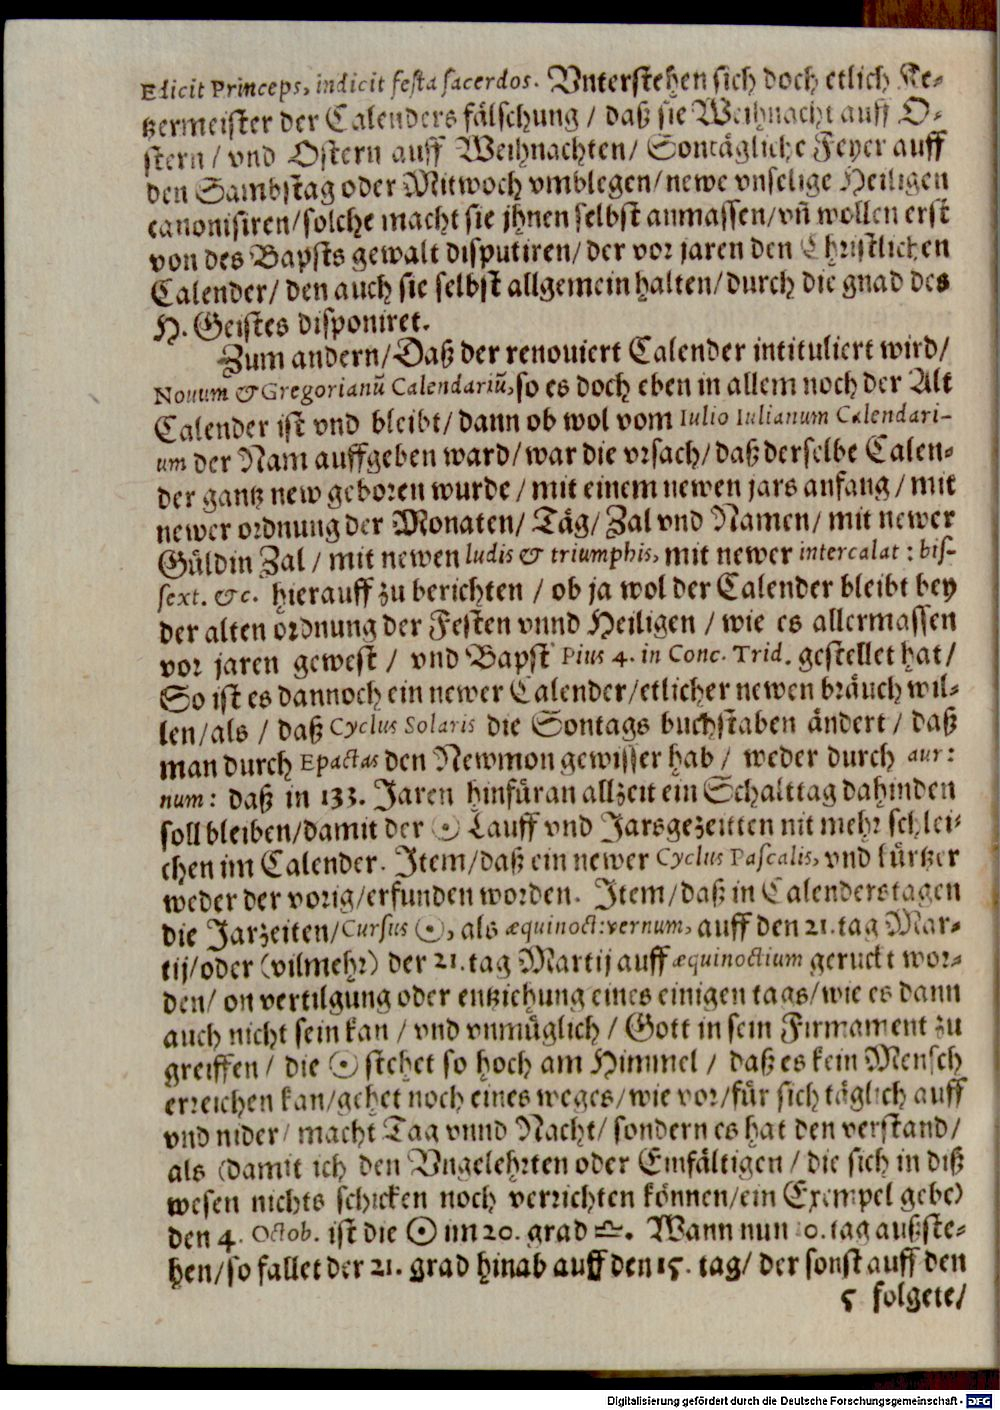 Edicit Princeps, indicit festa sacerdos. Vnterstehen sich doch etlich Ke-
tzermeister der Calenders fälschung / daß sie Weihnacht auff O-
stern / vnd Ostern auff Weihnachten / Sontägliche Feyer auff
den Sambstag oder Mitwoch vmblegen / newe vnselige Heiligen
canonisiren / solche macht sie jhnen selbst anmassen / vñ wollen erst
von des Bapsts gewalt disputiren / der vor jaren den Christlichen
Calender / den auch sie selbst allgemein halten / durch die gnad des
H. Geistes disponiret.
Zum andern / Daß der renouiert Calender intituliert wird /
Nouum & Gregorianũ Calendariũ, so es doch eben in allem noch der Alt
Calender ist vnd bleibt / dann ob wol vom Iulio Iulianum Calendari-
um der Nam auffgeben ward / war die vrsach / daß derselbe Calen-
der gantz new geboren wurde / mit einem newen jars anfang / mit
newer ordnung der Monaten / Täg / Zal vnd Namen / mit newer
Güldin Zal / mit newen ludis & triumphis, mit newer intercalat: bis-
sext. &c. hierauff zu berichten / ob ja wol der Calender bleibt bey
der alten ordnung der Festen vnnd Heiligen / wie es allermassen
vor jaren gewest / vnd Bapst Pius 4. in Conc. Trid. gestellet hat /
So ist es dannoch ein newer Calender / etlicher newen bräuch wil-
len / als / daß Cyclus Solaris die Sontags buchstaben ändert / daß
man durch Epactas den Newmon gewisser hab / weder durch aur:
num: daß in 133. Jaren hinfüran allzeit ein Schalttag dahinden
soll bleiben / damit der ☉ Lauff vnd Jarsgezeitten nit mehr schlei-
chen im Calender. Item / daß ein newer Cyclus Pascalis, vnd kürtzer
weder der vorig / erfunden worden. Item / daß in Calenderstagen
die Jarzeiten / Cursus ☉, als æquinoct: vernum, auff den 21. tag Mar-
tij / oder (vilmehr) der 21. tag Martij auff æquinoctium geruckt wor-
den / on vertilgung oder entziehung eines einigen tags / wie es dann
auch nicht sein kan / vnd vnmüglich / Gott in sein Firmament zu
greiffen / die ☉ stehet so hoch am Himmel / daß es kein Mensch
erreichen kan / gehet noch eines weges / wie vor / für sich täglich auff
vnd nider / macht Tag vnnd Nacht / sondern es hat den verstand /
als (damit ich den Vngelehrten oder Einfältigen / die sich in diß
wesen nichts schicken noch verrichten können / ein Exempel gebe)
den 4. Octob. ist die ☉ im 20. grad ♎. Wann nun 10. tag außste-
hen / so fallet der 21. grad hinab auff den 15. tag / der sonst auff den
5 folgete /
Digitalisierung gefördert durch die Deutsche Forschungsgemeinschaft - DFG